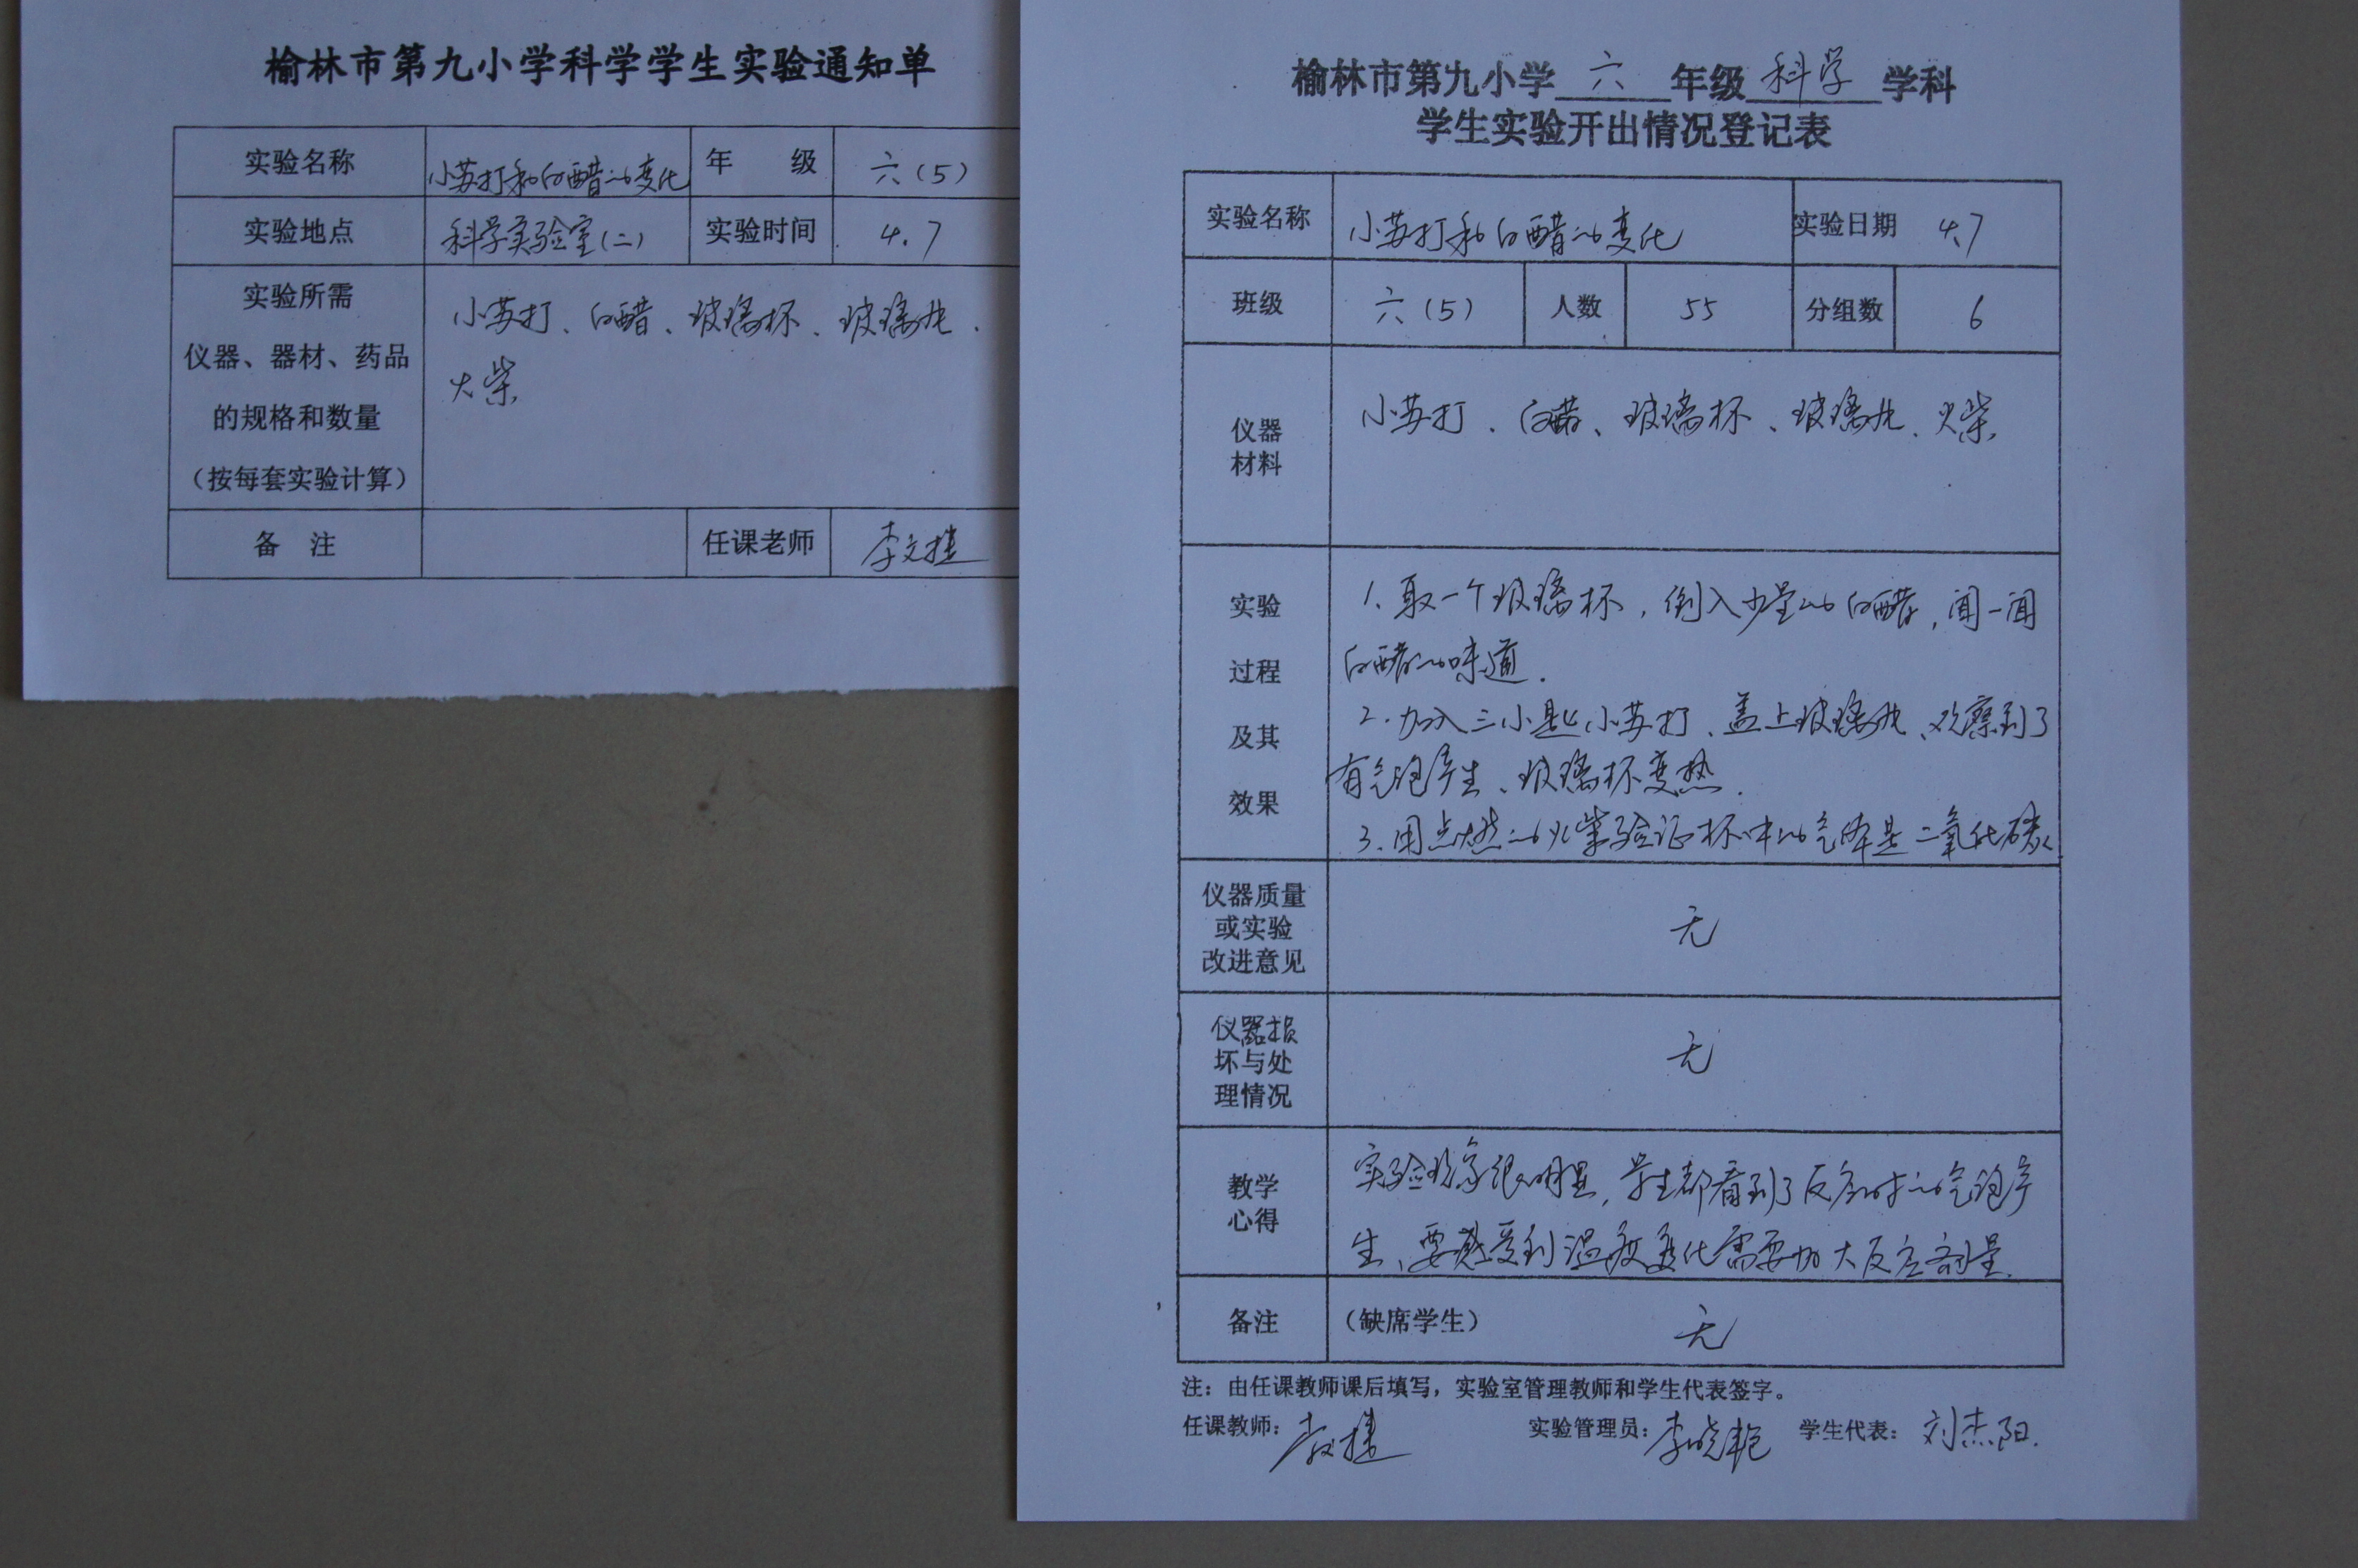 榆林市第九小学科学学生实验通知单
实验名称 小苏打和白醋的变化 年 级 六(5)
实验地点 科学实验室(二) 实验时间 4.7
实验所需
仪器、器材、药品
的规格和数量
(按每套实验计算)
小苏打、白醋、玻璃杯、玻璃片、
火柴
备 注 任课老师 李文捷
榆林市第九小学 六 年级 科学 学科
学生实验开出情况登记表
实验名称 小苏打和白醋的变化 实验日期 4.7
班级 六(5) 人数 55 分组数 6
仪器
材料
小苏打、白醋、玻璃杯、玻璃片、火柴
实验
过程
及其
效果
1、取一个玻璃杯,倒入少量的白醋,闻一闻
白醋的味道.
2.加入三小匙小苏打、盖上玻璃片、观察到了
有气泡产生、玻璃杯变热.
3.用点燃的火柴验证杯中的气体是二氧化碳
仪器质量
或实验
改进意见
无
仪器损
坏与处
理情况
无
教学
心得
实验现象很明显,学生都看到了反应时的气泡产
生、要感受到温度变化需要加大反应剂量.
备注 (缺席学生) 无
注:由任课教师课后填写,实验室管理教师和学生代表签字。
任课教师:李文捷 实验管理员:李晓艳 学生代表:刘杰阳.